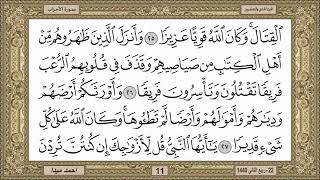 سورة الأحزاب
ٱلْقِتَالَ ۚ وَكَانَ ٱللَّهُ قَوِيًّا عَزِيزًا ٢٥ وَأَنزَلَ ٱلَّذِينَ ظَٰهَرُوهُم مِّنْ
أَهْلِ ٱلْكِتَٰبِ مِن صَيَاصِيهِمْ وَقَذَفَ فِى قُلُوبِهِمُ ٱلرُّعْبَ
فَرِيقًا تَقْتُلُونَ وَتَأْسِرُونَ فَرِيقًا ٢٦ وَأَوْرَثَكُمْ أَرْضَهُمْ
وَدِيَٰرَهُمْ وَأَمْوَٰلَهُمْ وَأَرْضًا لَّمْ تَطَـُٔوهَا ۚ وَكَانَ ٱللَّهُ عَلَىٰ كُلِّ
شَىْءٍ قَدِيرًا ٢٧ يَٰٓأَيُّهَا ٱلنَّبِىُّ قُل لِّأَزْوَٰجِكَ إِن كُنتُنَّ تُرِدْنَ
22 - ربيع الثاني 1440
11